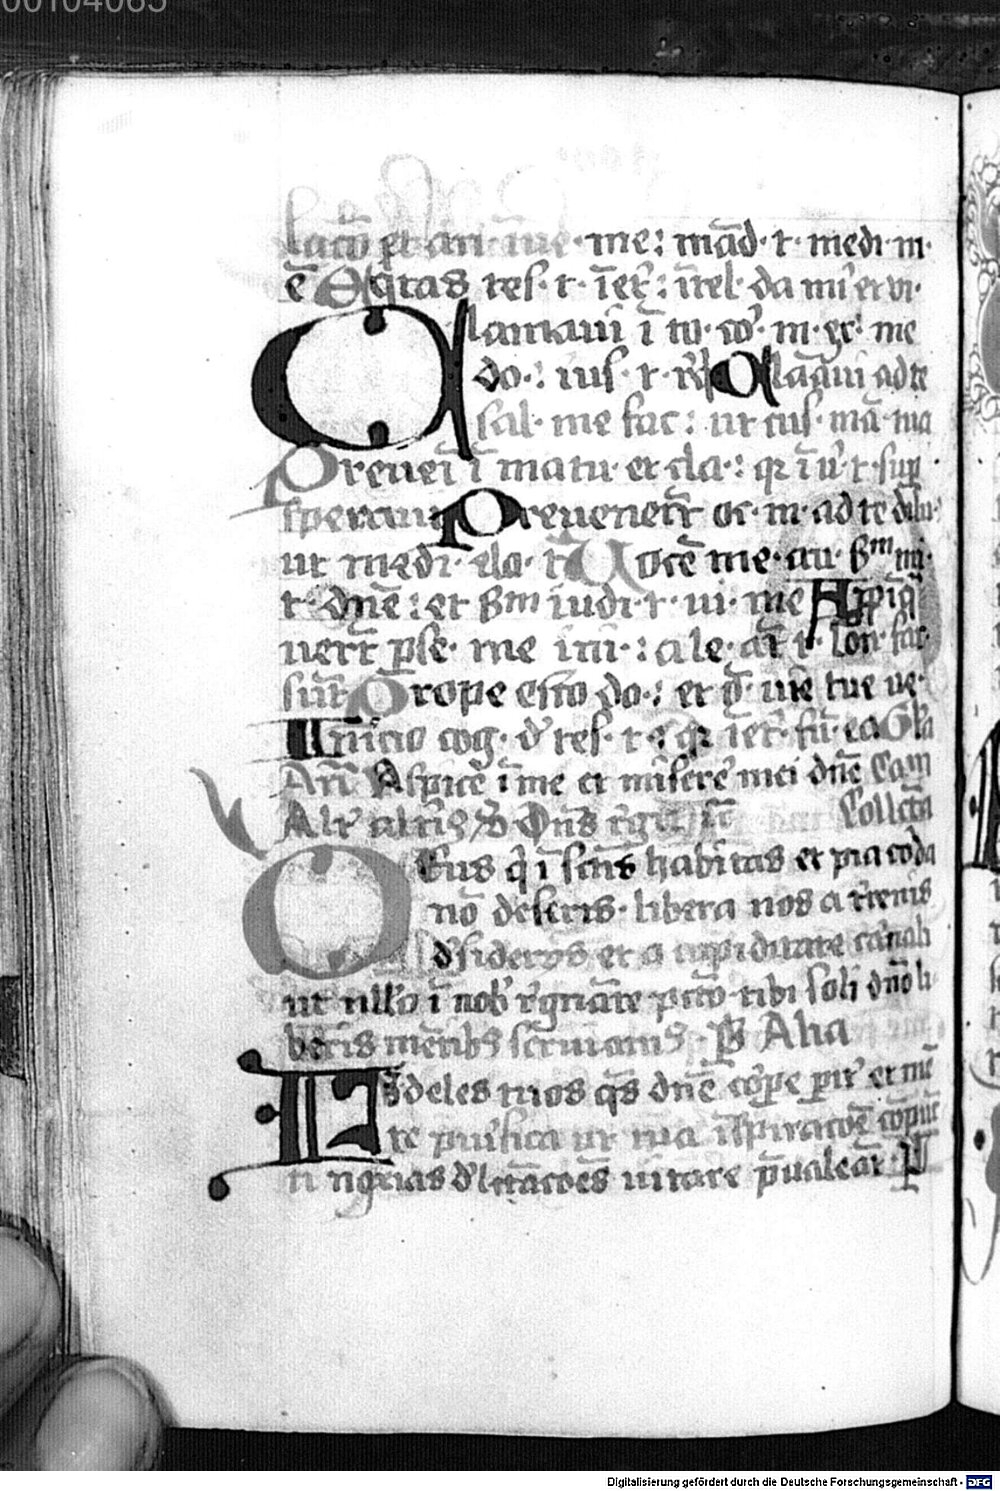 00104065
me: mād· t· medi· m·
ē Eq̄tas tes· t· ī et̄: ītel· da mi et vi·
Clamavi ī to· co· m· ex· me
do·: ius· t· r̄ Clāaui ad te
sal· me fac: ut cus· mā· tua
Preueī ī matu· et cla·: qr ī u· t· sup
speraui Preuenert̄ oc· m· ad te dilu·
ut medi· elo· t̄ Uocē me· au· s̄m mi·
t· dn̄e: et s̄m iudi· t· ui· me App̄iq̄
uert̄ p̄se· me ini·: a le· at̄ t· lon· fac·
sūt Prope esto do·: et o· uie tue ue·
Inicio cog· d' tes· t·: qr ī et̄· fū· ea Gla
An̄ Aspice ī me et miserē mei dn̄e Cam
Collc̄ta
Deus q̄ ī sc̄tis habitas et pia corda
nō deseris· libera nos a t̄renis
d'sideriis et a cupiditate carnali
ut nullo ī nob̄ r̄gnāte p̄cco tibi soli dn̄o li·
beris mētibȝ seruiamȝ· P̄ Alia
Fideles tuos q̄s dn̄e corpe pit' et mē
te purifica ut tua īspiratōe cōpūc
ti noxias d'lc̄tatōes uitare p̄ualeāt· P̄
Digitalisierung gefördert durch die Deutsche Forschungsgemeinschaft - DFG